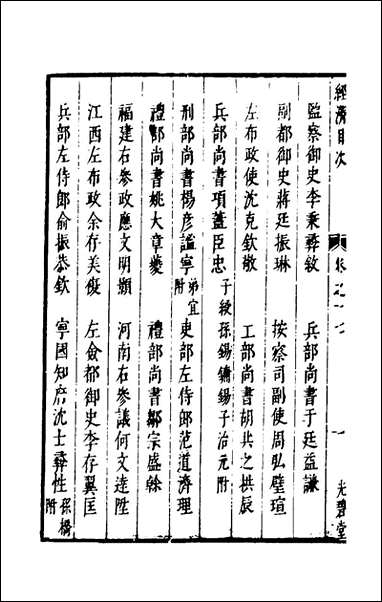 經濟目次 卷之十七 一 光碧堂
監察御史李秉彝敏 兵部尚書于廷益謙
副都御史蔣廷振琳 按察司副使周弘璧瑄
左布政使沈克欽敬 工部尚書胡共之拱辰
兵部尚書項藎臣忠 子綬孫錫鏞錫子治元附
刑部尚書楊彥謐寧 弟宜附 吏部左侍郎范道濟理
禮部尚書姚大章夔 禮部尚書鄒宗盛榦
福建右參政應文明顥 河南右參議何文達陞
江西左布政余存美 左僉都御史李存翼匡
兵部左侍郎俞振恭欽 寧國知府沈士彝性 孫橋附